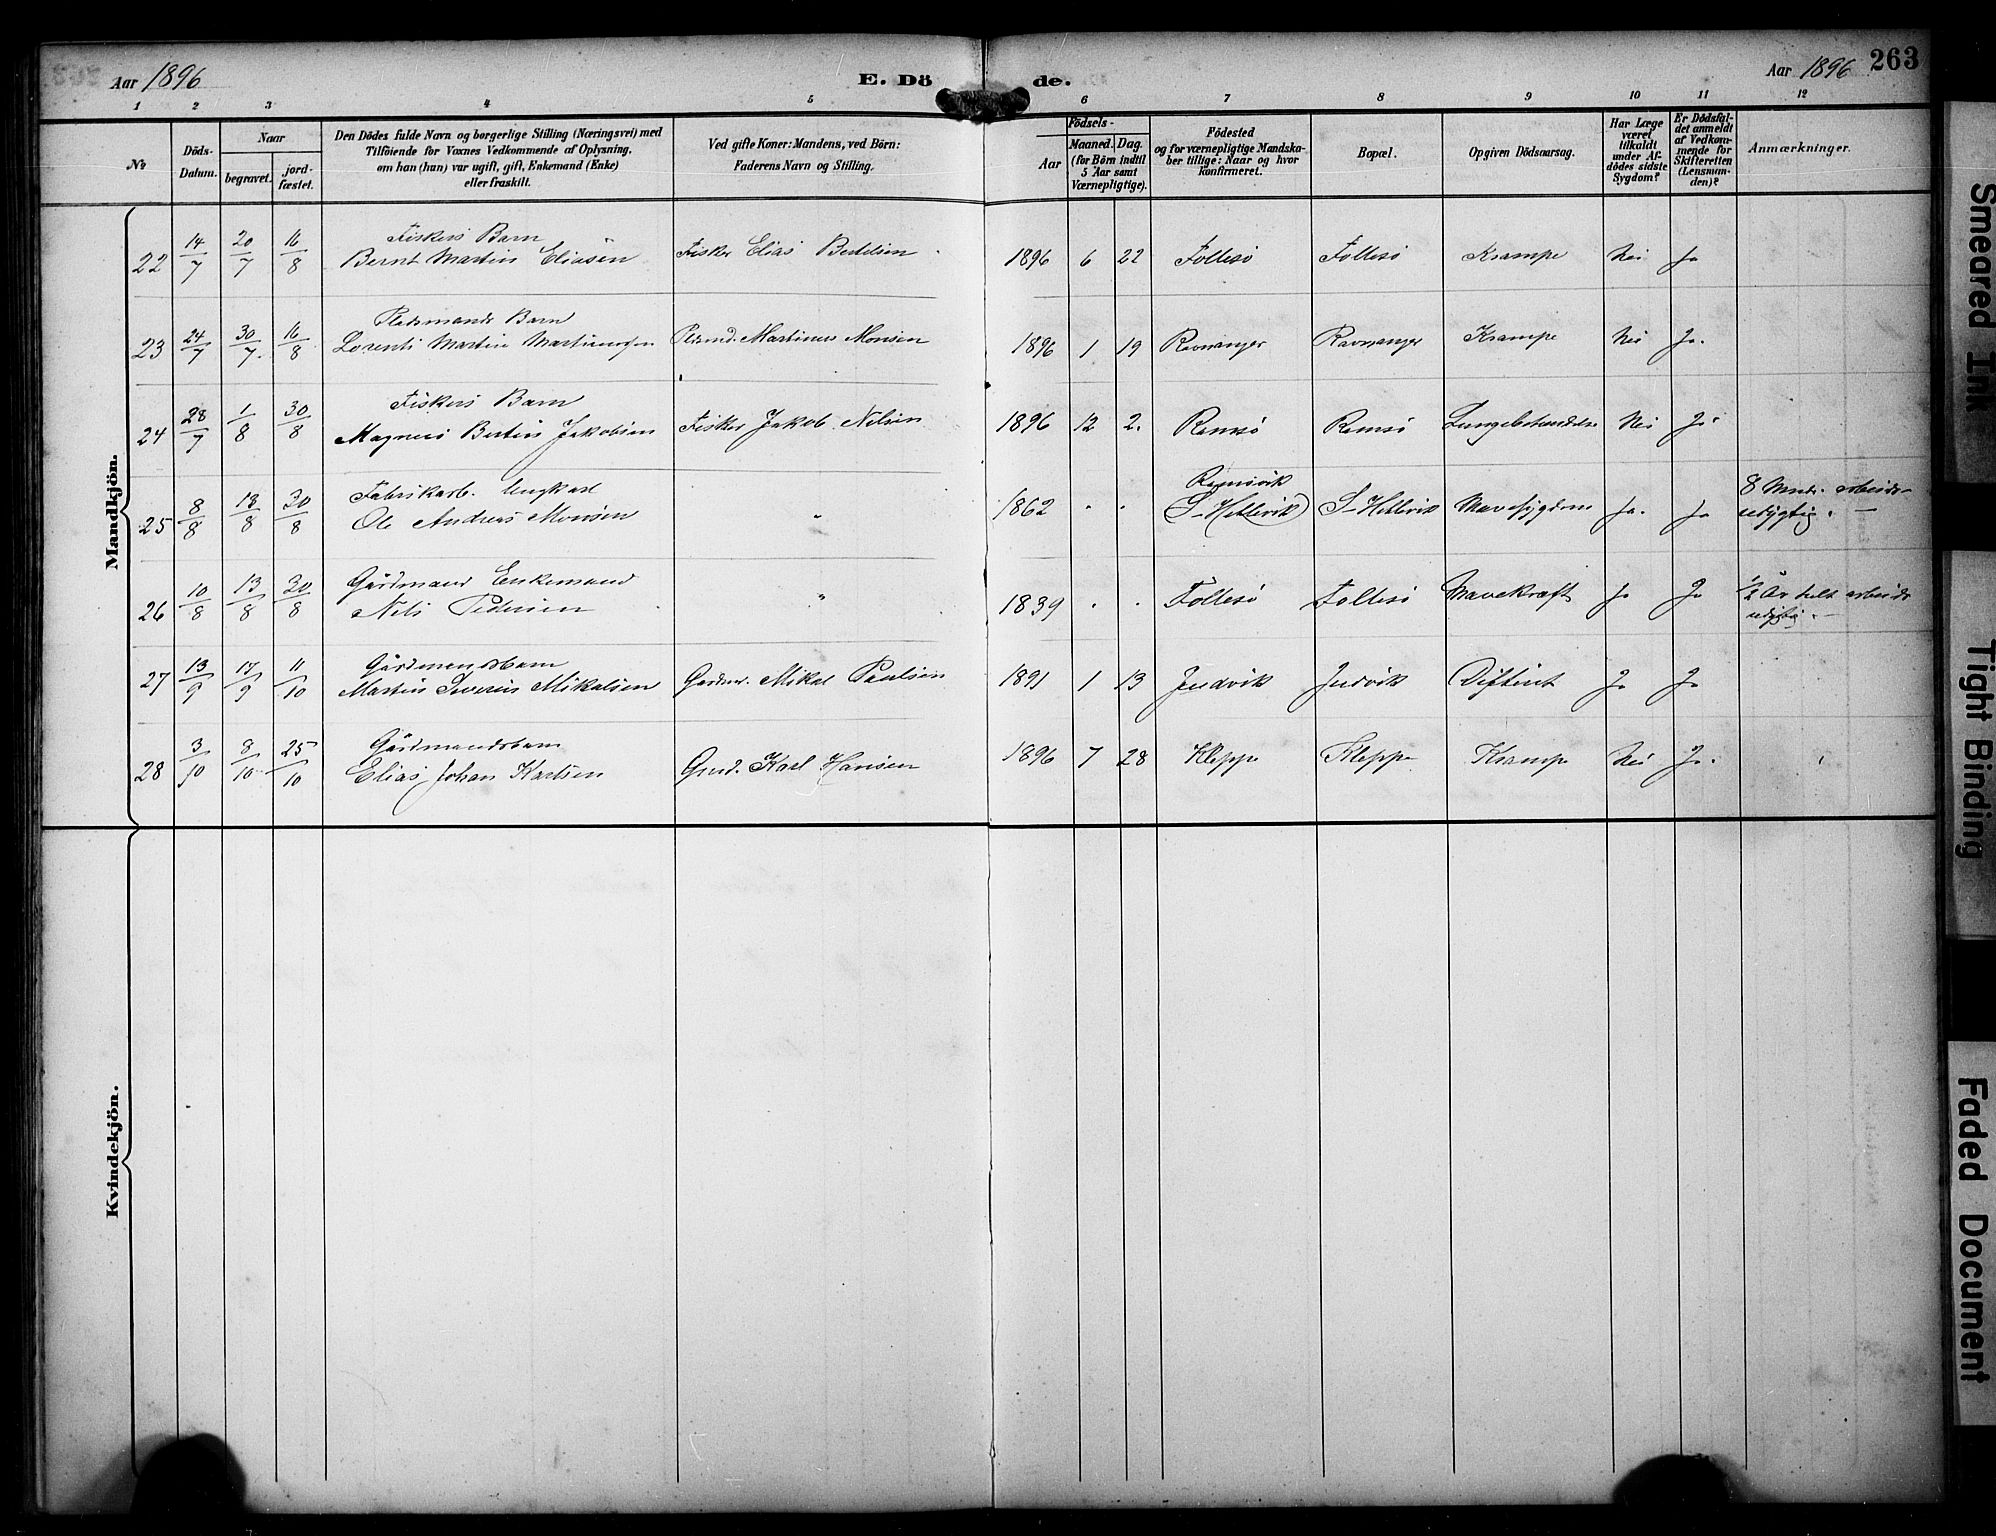 Aar 1896
E. Döde.
Aar 1896
263
1 2 3 4 5 6 7 8 9 10 11 12
No
Döds-Datum.
Naar
begravet.
jord-fæstet.
Den Dödes fulde Navn og borgerlige Stilling (Næringsvei) med
Tilföiende for Voxnes Vedkommende af Oplysning,
om han (hun) var ugift, gift, Enkemand (Enke)
eller fraskilt.
Ved gifte Koner: Mandens, ved Börn:
Faderens Navn og Stilling.
Födsels-
Aar
Maaned. Dag.
(for Börn indtil
5 Aar samt
Værnepligtige).
Födested
og for værnepligtige Mandska-
ber tillige: Naar og hvor
konfirmeret.
Bopæl.
Opgiven Dödsaarsag.
Har Læge
været
tilkaldt
under Af-
dödes sidste
Sygdom?
Er Dödsfal-
det anmeldt
af Vedkom-
mende for
Skifteretten
(Lensman-
den)?
Anmærkninger.
Mandkjön.
Fiskers Barn
22 14/7 20/7 16/8 Bernt Martin Eliasen Fisker Elias Bertelsen 1896 6 22 Follesö Follesö Krampe Nei Ja
Pladsmands Barn
23 24/7 30/7 16/8 Lorents Martin Martinusen Pladsmd. Martinus Monsen 1896 1 19 Ravnanger Ravnanger Krampe Nei Ja.
Fiskers Barn
24 28/7 1/8 30/8 Magnus Bertin Jakobsen Fisker Jakob Nilsen 1896 12 2. Ramsö Ramsö Lungebetændelse Nei Ja
Fabrikarb. Ungkarl Ramsvik 8 Mndr. arbeids-
25 8/8 13/8 30/8 Ole Andreas Monsen " 1862 . . (S-Hetlevik) S-Hetlevik Mavesygdom Ja. Ja udygtig. —
Gårdmand Enkemand ½ År helt arbeids
26 10/8 13/8 30/8 Nels Pedersen " 1839 . . Follesö Follesö Mavekræft Ja Ja udygtig. —
Gårdmandsbarn
27 13/9 17/9 11/10 Martin Severin Mikalsen Gaardm. Mikal Paulsen 1891 1 13 Judvik Judvik Difterit Ja Ja
Gårdmandsbarn
28 3/10 8/10 25/10 Elias Johan Karlsen Gmd. Karl Hansen 1896 7 28 Kleppe Kleppe Krampe Nei Ja.
Kvindekjön.
Smeared Ink
Tight Binding
Faded Document